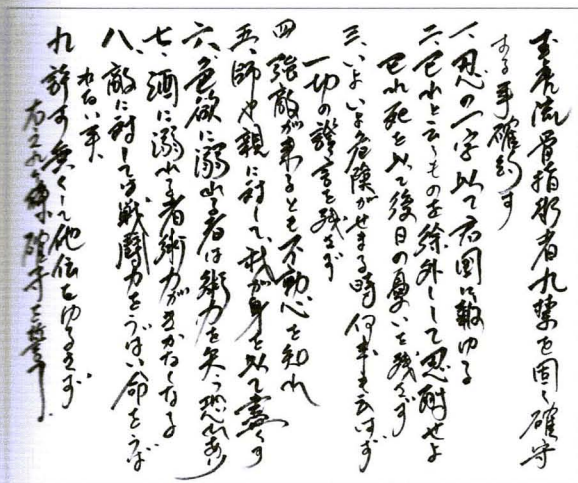 玉虎流骨指術者九禁を固く確守
する事確約す
一、忍の一字以て君国に報ゆる
二、己れと云うものを除外して忍耐せよ
己れ死を以て後日の憂いを残さず
三、いよいよ危険がせまる時何事も云はず
一切の證言を残さず
四 強敵が来るとも不動心を知れ
五、師や親に対して、我が身を以て盡くす
六、色欲に溺れる者は術力を失う恐れあり
七、酒に溺れる者術力がきかなくなる
八、敵に対しては戦闘力をうばい命をうば
わない事、
九 許す無くして他伝をゆるさず
右之九ヶ條確守を誓う